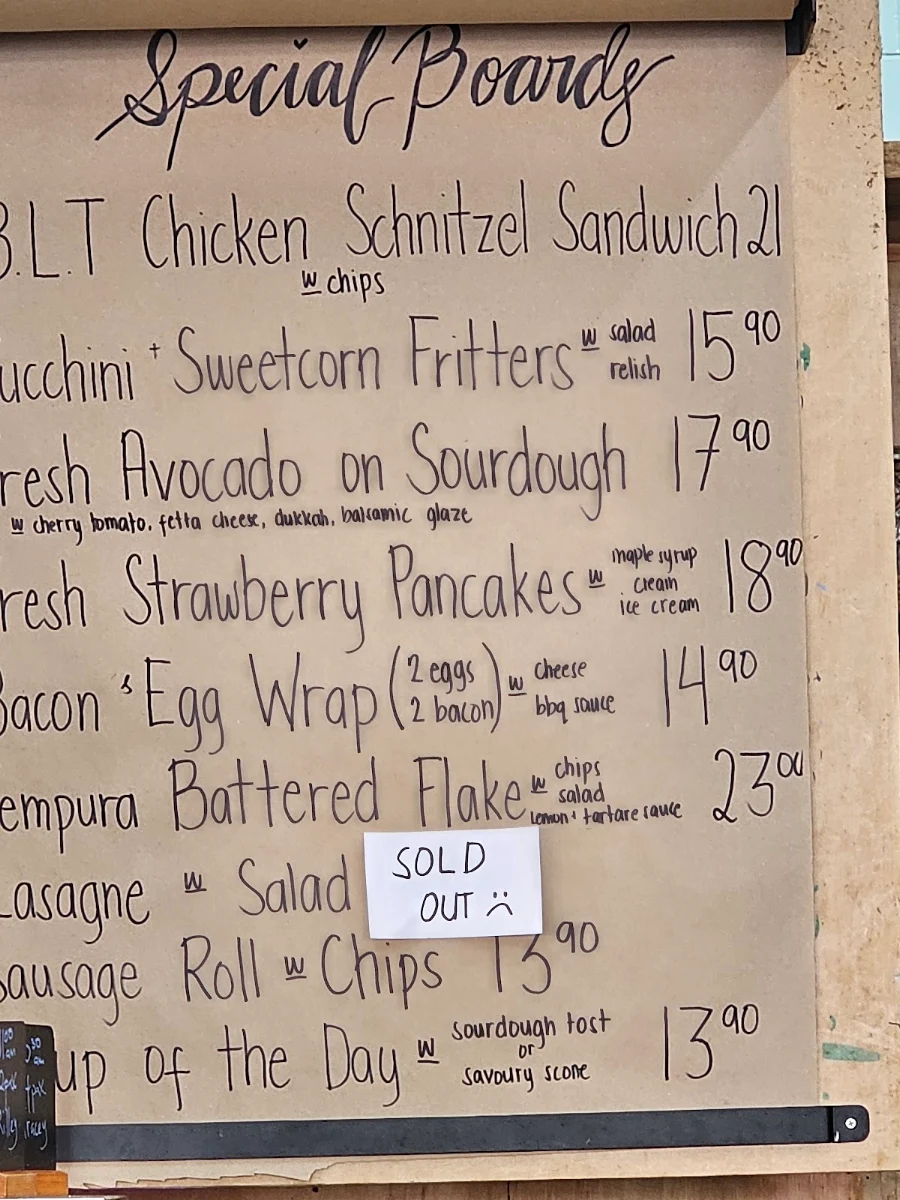 Special Boards
B.L.T Chicken Schnitzel Sandwich 21
w chips
ucchini + Sweetcorn Fritters w salad relish 15.90
resh Avocado on Sourdough 17.90
w cherry tomato, fetta cheese, dukkah, balsamic glaze
resh Strawberry Pancakes w maple syrup cream ice cream 18.90
Bacon & Egg Wrap (2 eggs 2 bacon) w cheese bbq sauce 14.90
empura Battered Flake w chips salad lemon + tartare sauce 23.00
Lasagne w Salad SOLD OUT :(
Sausage Roll w Chips 13.90
up of the Day w sourdough tost or savoury scone 13.90